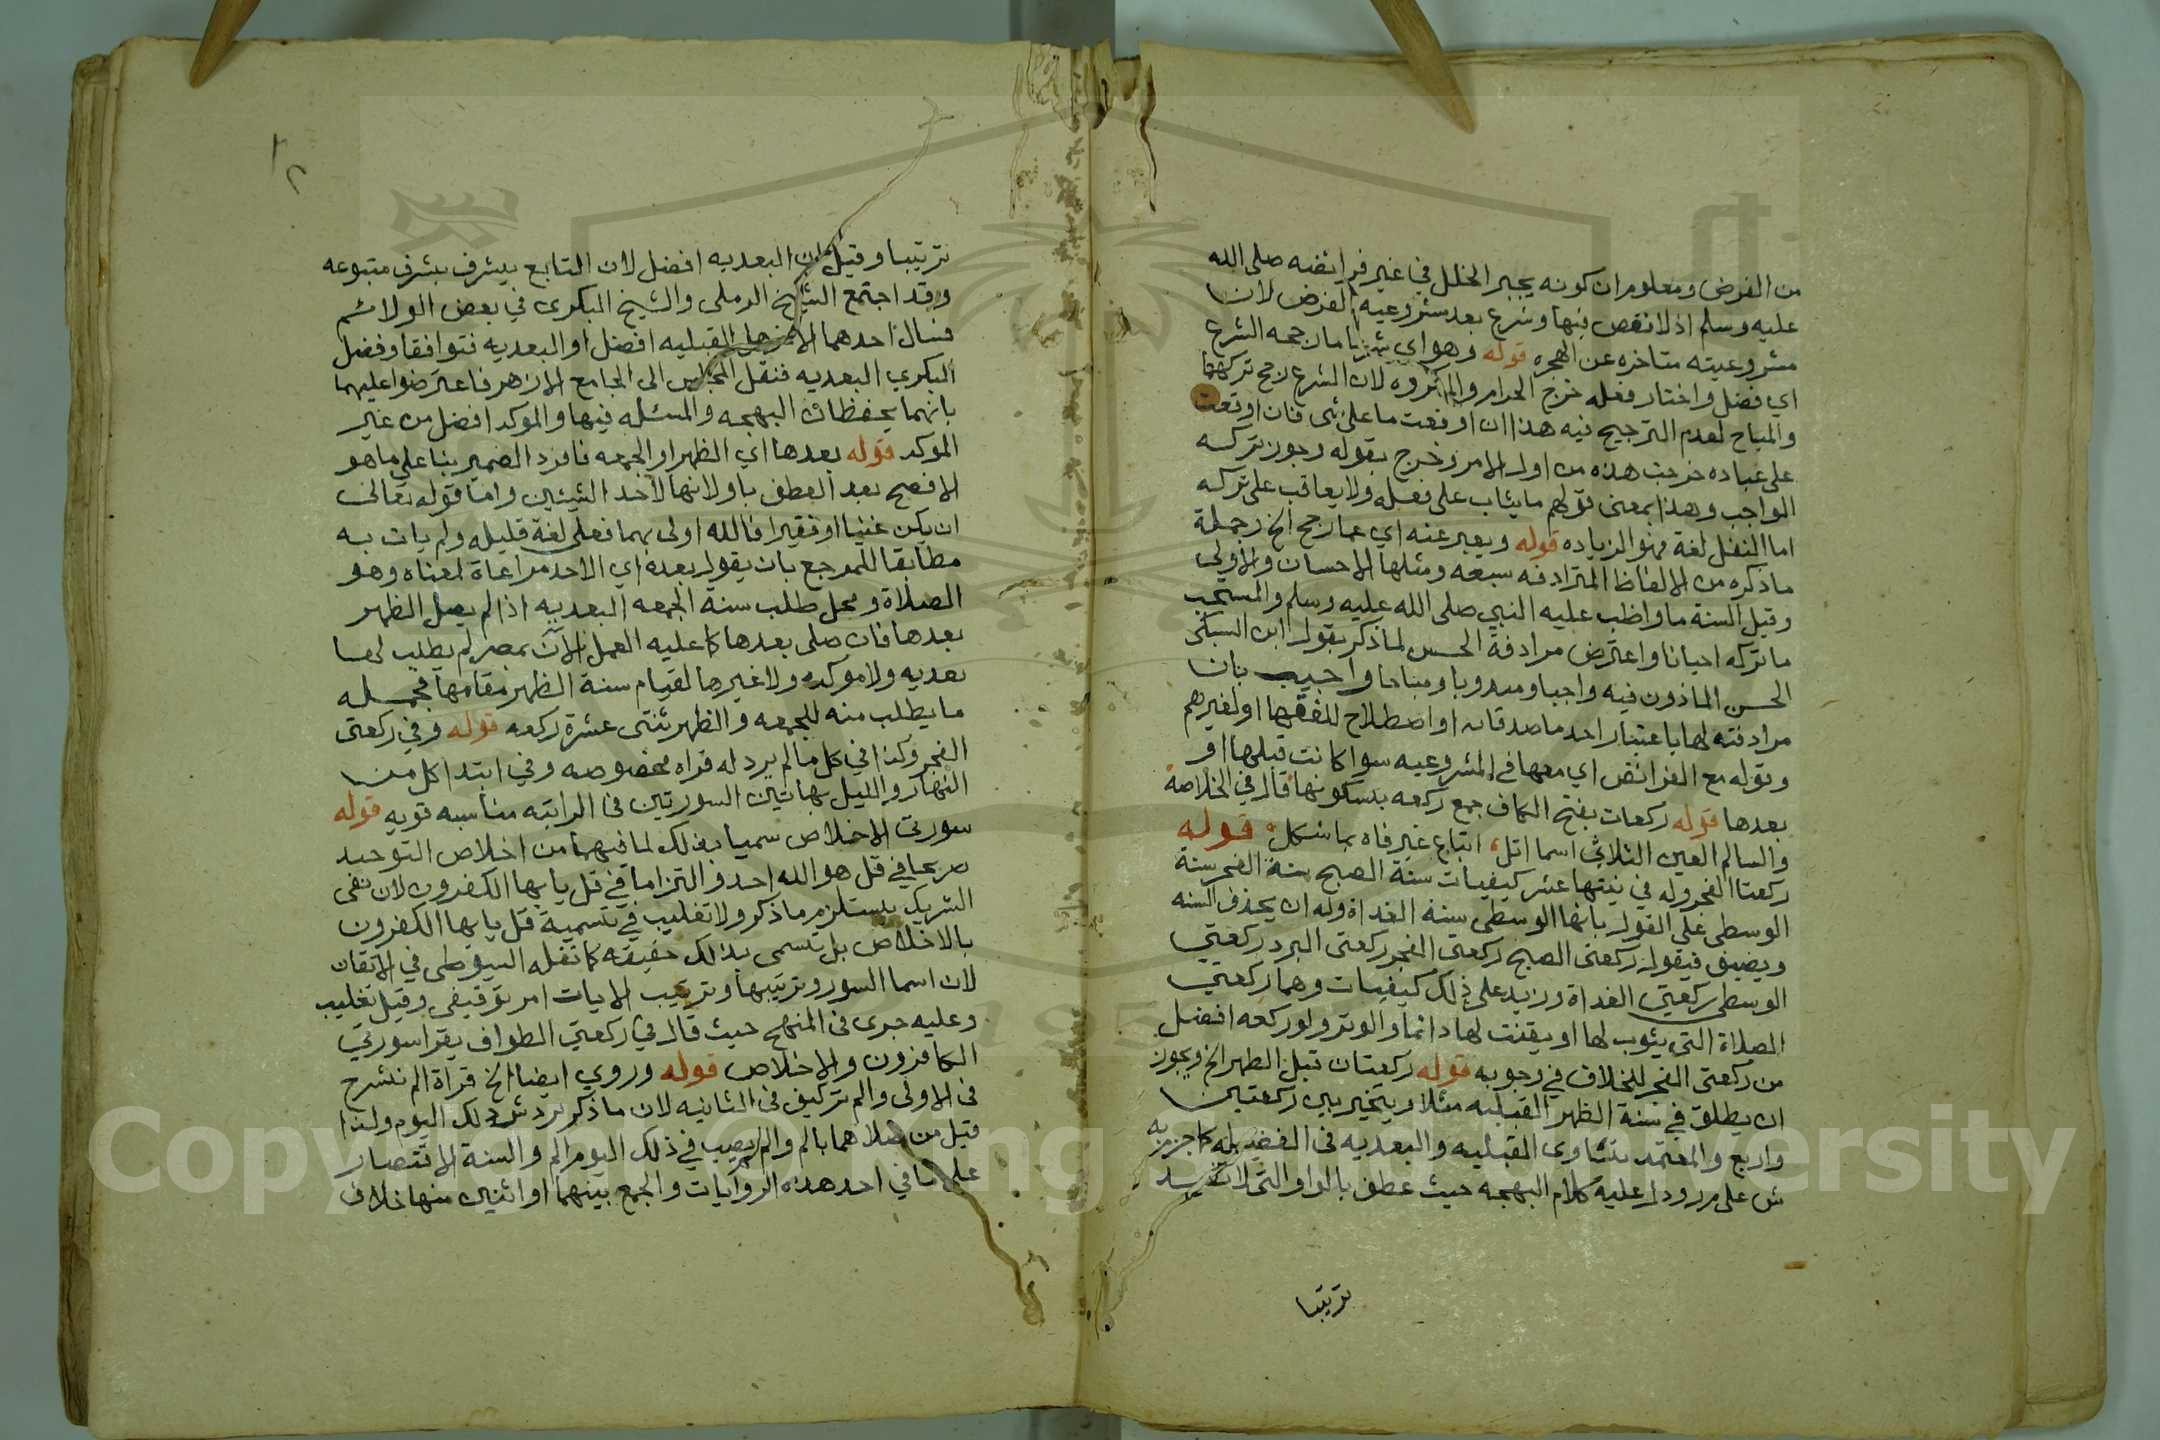 من الفرض ومعلوم ان كونه يجبر الخلل في غير فرايضه صلى الله
عليه وسلم اذ لا نقص فيها وشرع بعد مشروعية الفرض لان
مشروعيته متاخره عن الهجره قوله وهو اي شرعا مارجحه الشرع
اي فضل واختار فعله خرج الحرام والمكروه لان الشرع رجح تركهما
والمباح لعدم الترجيح فيه هذا ان اوقعت ما على شى فان اوقعت
على عباده خرجت هذه من اول الامر وخرج بقوله وجوز تركه
الواجب وهذا بمعنى قولهم ما يثاب على فعله ولا يعاقب على تركه
اما النفل لغة فهو الزياده قوله ويعبر عنه اي عما رجح الخ وجملة
ما ذكره من الالفاظ المترادفه سبعه ومثلها الاحسان والاولى
وقيل السنة ما واظب عليه النبي صلى الله عليه وسلم والمستحب
ما تركه احيانا واعترض مرادفة الحسن لما ذكر بقول ابن السبكى
الحسن الماذون فيه واجبا ومندوبا ومباحا واجيب بان
مرادفته لها باعتبار احد ماصدقاته او اصطلاح للفقها او لغيرهم
وقوله مع الفرائض اي معها في المشروعيه سوا كانت قبلها او
بعدها قوله ركعات بفتح الكاف جمع ركعه بسكونها قال في الخلاصة
والسالم العين الثلاثي اسما انل، اتباع عين فاه بما شكل، قوله
ركعتا الفجر وله في نيتها عشر كيفيات سنة الصبح سنة الفجر سنة
الوسطى على القول بانها الوسطى سنة الغداة وله ان يحذف السنه
ويضيف فيقول ركعتى الصبح ركعتى الفجر ركعتى البرد ركعتي
الوسطى ركعتي الغداة وزيد على ذلك كيفيات وهما ركعتي
الصلاة التى يثوب لها او يقنت لها دائما والوتر ولو ركعه افضل
من ركعتى الفجر للخلاف في وجوبه قوله ركعتان قبل الظهر الخ ويجوز
ان يطلق في سنة الظهر القبليه مثلا ويتخير بين ركعتين
واربع والمعتمد تساوى القبليه والبعديه فى الفضيله كما جزم به
ش على م ر ودل عليه كلام البهجه حيث عطف بالواو التى لا تفيد
ترتيبا
ترتيبا وقيل ان البعديه افضل لان التابع يشرف بشرف متبوعه
وقد اجتمع الشيخ الرملى والشيخ البكرى في بعض الولائم
فسال احدهما الاخر هل القبليه افضل او البعديه فتوافقا وفضل
البكري البعديه فنقل المجلس الى الجامع الازهر فاعترضوا عليهما
بانهما يحفظان البهجه والمسئله فيها والموكد افضل من غير
الموكد قوله بعدها اي الظهر او الجمعه فافرد الضمير بنا على ما هو
الافصح بعد العطف باو لانها لاحد الشيئين واما قوله تعالى
ان يكن غنيا او فقيرا فالله اولى بهما فعلى لغة قليله ولم يات به
مطابقا للمرجع بان يقول بعده اي الاحد مراعاة لمعناه وهو
الصلاة ومحل طلب سنة الجمعه البعديه اذا لم يصل الظهر
بعدها فان صلى بعدها كما عليه العمل الآن بمصر لم يطلب لها
بعديه ولا موكده ولا غيرها لقيام سنة الظهر مقامها فجمله
ما يطلب منه للجمعه والظهر ثنتى عشرة ركعه قوله وفي ركعتى
الفجر وكذا في كل مالم يرد له قراه مخصوصه وفي ابتدا كل من
النهار والليل بهاتين السورتين فى الراتبه مناسبه قويه قوله
سورتى الاخلاص سميا بذلك لما فيهما من اخلاص التوحيد
صريحا في قل هو الله احد والتزاما في قل يايها الكفرون لان نفى
الشريك يستلزم ما ذكر ولا تغليب في تسمية قل يايها الكفرون
بالاخلاص بل تسمى بذلك حقيقه كما نقله السيوطى في الاتقان
لان اسما السور وترتيبها وترتيب الايات امر توقيفى وقيل تغليب
وعليه جرى فى المنهج حيث قال في ركعتي الطواف يقرا سورتي
الكافرون والاخلاص قوله وروي ايضا الخ قراة الم نشرح
فى الاولى والم تركيف فى الثانيه لان ما ذكر يرد شر ذلك اليوم ولذا
قيل من صلاهما بالم والم لم يصب في ذلك اليوم الم والسنة الاقتصار
على ما في احد هذه الروايات والجمع بينهما او اثنين منها خلاف